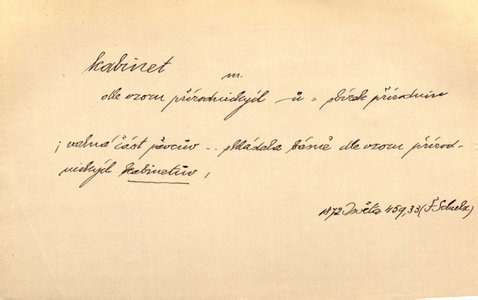 kabinet
m.
dle vzoru přírodnických -ů = sbírek přírodnin
; valná část pěvcův .. skládala básně dle vzoru přírod-
nických kabinetův,
1872 Osvěta 459,33 (F. Schulz)